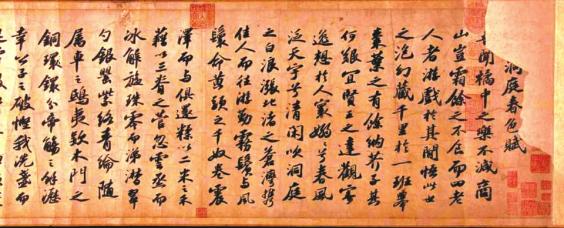 洞庭春色賦
聞橘中之樂不減商
山豈霜餘之不食而四老
人者游戲於其間悟此世
之泡幻藏千里於一班舉
棗葉之有餘納芥子其
何艱宜賢王之達觀寄
逸想於人寰嫋嫋兮春風
泛天宇兮清閑吹洞庭
之白浪漲北渚之蒼灣攜
佳人而往游勤霧鬢與風
鬟命黃頭之千奴卷震
澤而與俱還糅以二米之禾
藉以三脊之菅忽雲烝而
冰解旋珠零而涕潸翠
勺銀罌紫絡青綸隨
屬車之鴟夷款木門之
銅環鐶分帝觴之餘瀝
幸公子之破慳我洗盞而